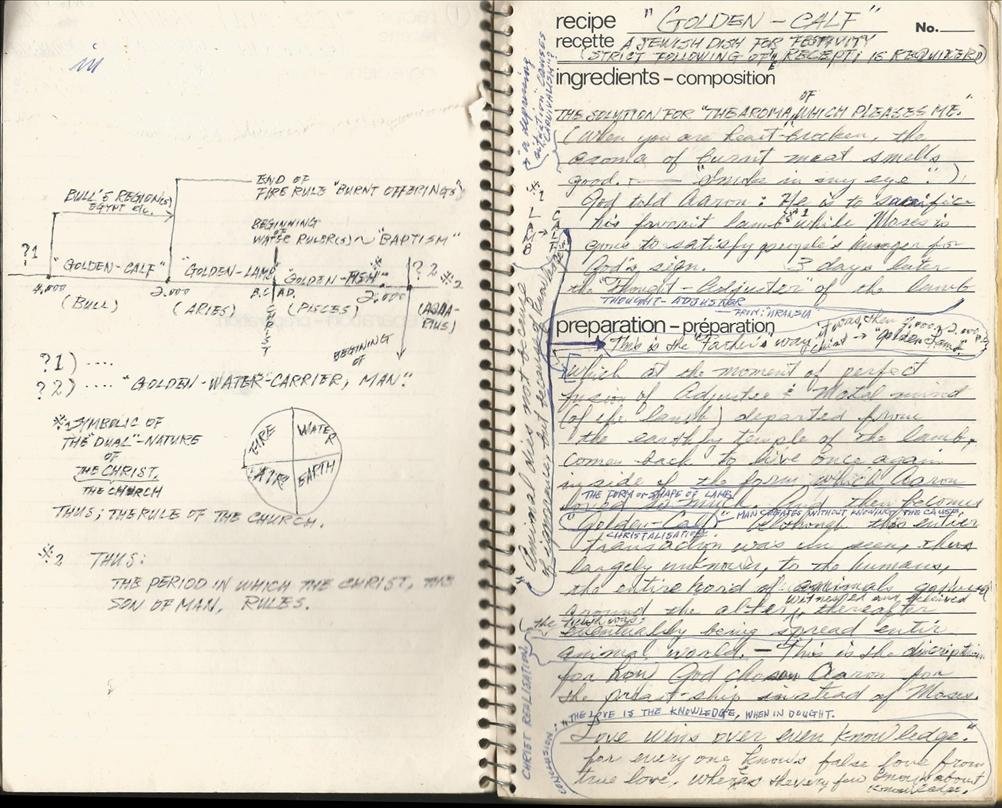 BULL'S REGION(S)
EGYPT etc.
END OF
FIRE RULE "BURNT OFFERING(S)"
BEGINNING
OF
WATER RULER(S) ~ "BAPTISM"
?1
"GOLDEN-CALF"
"GOLDEN-LAMB"
"GOLDEN-FISH"
?2 ※2
4,000
2,000
B.C
A.D.
2,000
(BULL)
(ARIES)
CHRIST
(PISCES)
(AQUARIUS)
BEGINNING
OF
?1) ....
?2) .... "GOLDEN-WATER-CARRIER, MAN."
※1 SYMBOLIC OF
THE "DUAL"-NATURE
OF
THE CHRIST,
THE CHURCH
THUS; THE RULE OF THE CHURCH.
FIRE
WATER
AIR
EARTH
※2 THUS:
THE PERIOD IN WHICH THE CHRIST, THE
SON OF MAN, RULES.
recipe "GOLDEN-CALF" No.
recette A JEWISH DISH FOR FESTIVITY
(STRICT FOLLOWING OF RECEPTI IS REQUIRED)
ingredients – composition
THE SOLUTION FOR "THE AROMA OF WHICH PLEASES ME."
(When you are heart-brocken, the
aroma of burnt meat smells
good. — "Smoke in my eye".)
God told Aaron: He is to sacrifice
his favorit lamb ※1 while Moses is
gone to satisfy people's hunger for
God's sign. 3 days later
the "Thought-Adjuster" of the lamb
THOUGHT-ADJUSTER
FROM: URANTIA
preparation – préparation
This is the "Father's way,
"golden Lamb."
which at the moment of perfect
fusion of Adjuster & Motal mind
(of the lamb) departed from
the earthly temple of the lamb,
comes back to live once again
inside of the form which Aaron
THE FORM OR SHAPE OF LAMB
loved so much and then becomes
"Golden-Calf" MAN CREATES WITHOUT KNOWING THE CAUSE.
CHRISTALISATION
Although this entire
transaction was un seen, thus
largely unknown, to the humans,
the entire hord of animals gathered
witnessed and perceived
around the alter, thereafter
(the newswas:
eventually being spread entir
animal world. — This is the discription
for how God chosen Aaron for
the preast-ship instead of Moses.
"THE LOVE IS THE KNOWLEDGE, WHEN IN DOUGHT.
"Love wins over even knowledge."
for every one knows false love from
true love. Wheras the very few knows about
knowledge.)
LAMB → CALF
"Animal dies not because
of ignorance but because of
CHRIST REALISATION
CONCLUSION: